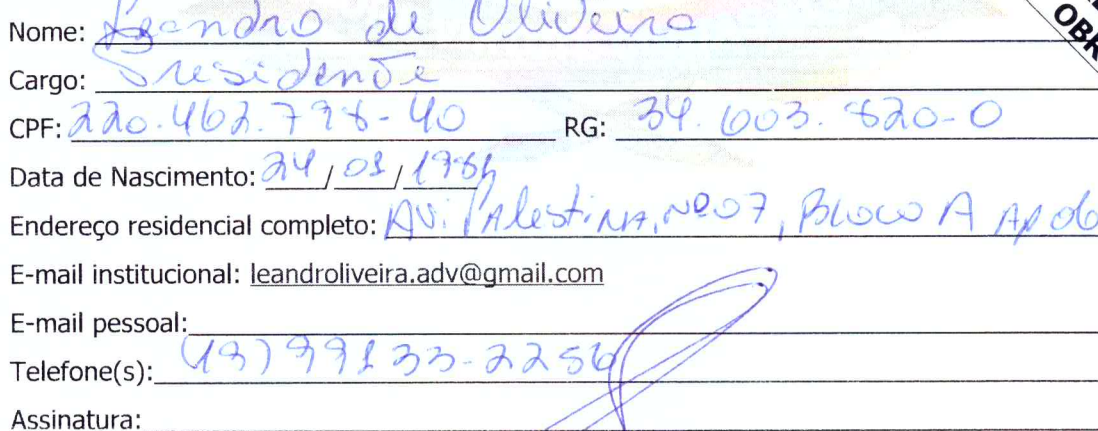 OBR
Nome: Leandro de Oliveira
Cargo: Presidente
CPF: 220.462.798-40 RG: 34.603.820-0
Data de Nascimento: 24/01/1981
Endereço residencial completo: AV: PAlestiNA, Nº07, Bloco A Ap 06
E-mail institucional: leandroliveira.adv@gmail.com
E-mail pessoal:
Telefone(s): (13) 99133-2256
Assinatura: